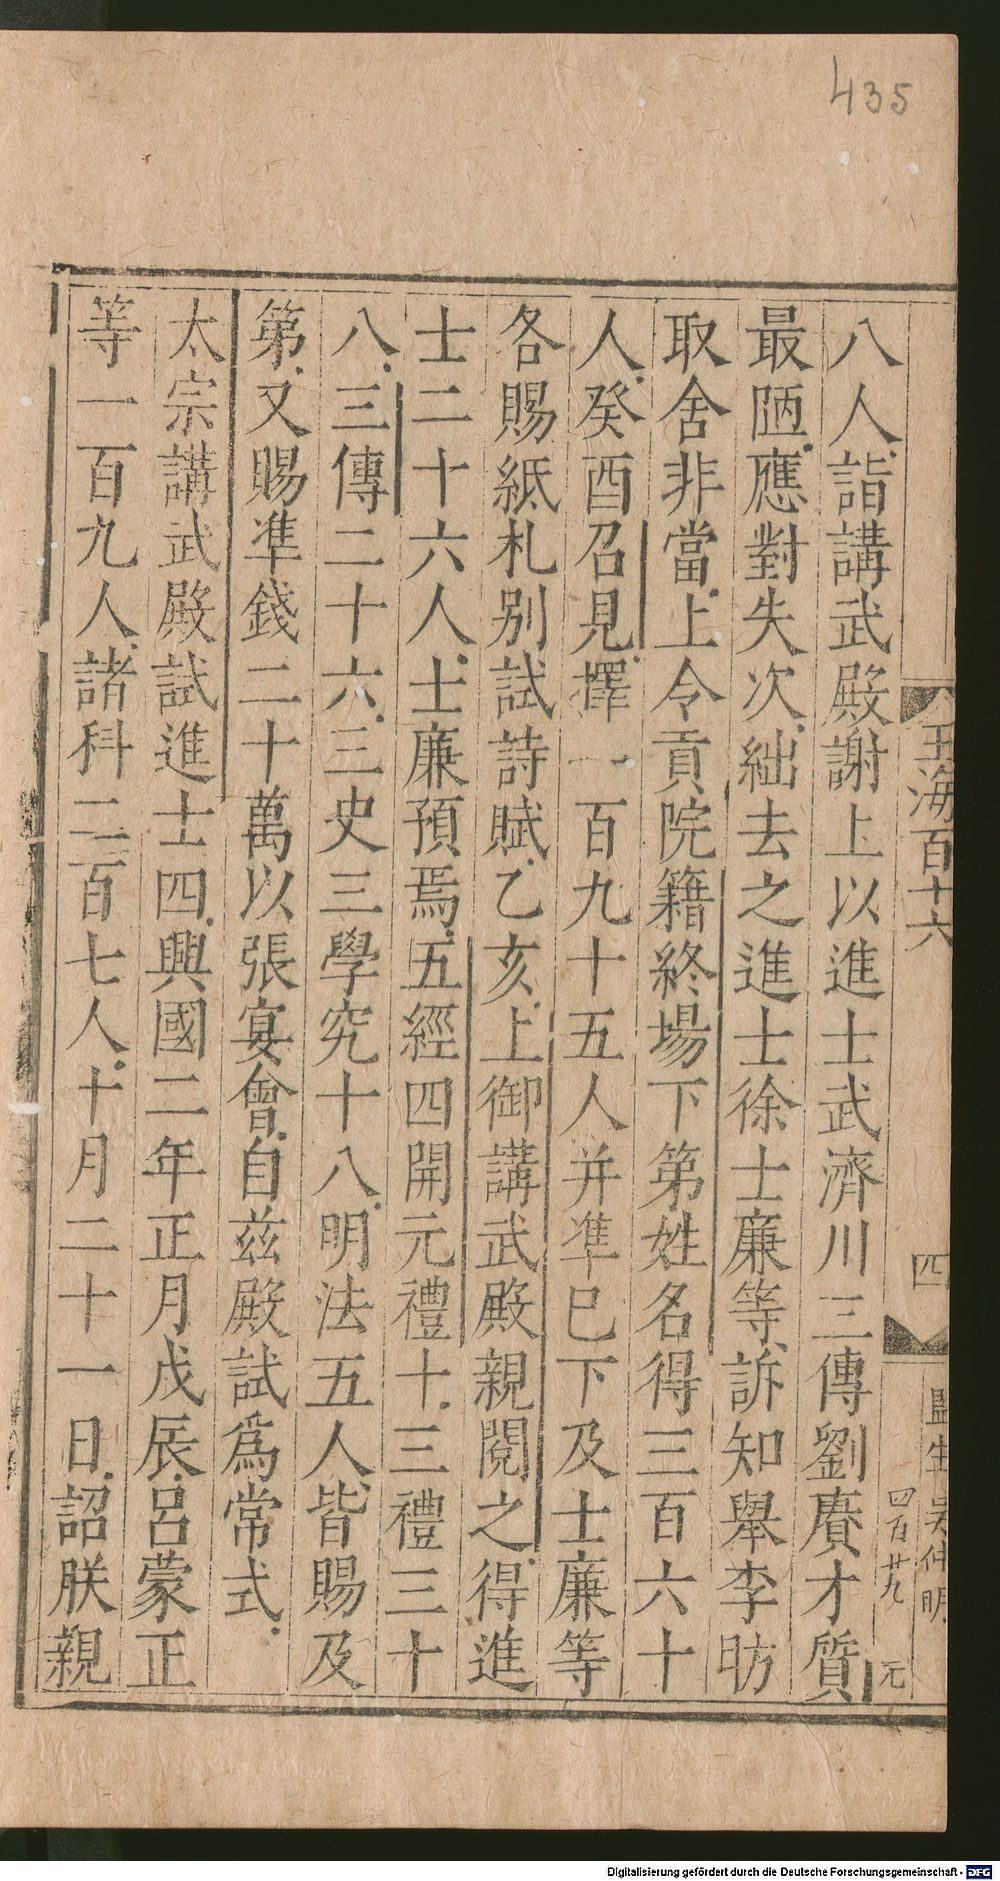 435
玉海百十六
四
監生吳仲明
四百廿九
元
八人詣講武殿謝上以進士武濟川三傳劉賡才質
最陋應對失次絀去之進士徐士廉等訴知舉李昉
取舍非當上令貢院籍終場下第姓名得三百六十
人癸酉召見擇一百九十五人并準已下及士廉等
各賜紙札别試詩賦乙亥上御講武殿親閱之得進
士二十六人士廉預焉五經四開元禮十三禮三十
八三傳二十六三史三學究十八明法五人皆賜及
第又賜準錢二十萬以張宴會自兹殿試爲常式
太宗講武殿試進士四興國二年正月戊辰呂蒙正
等一百九人諸科二百七人十月二十一日詔朕親
Digitalisierung gefördert durch die Deutsche Forschungsgemeinschaft - DFG